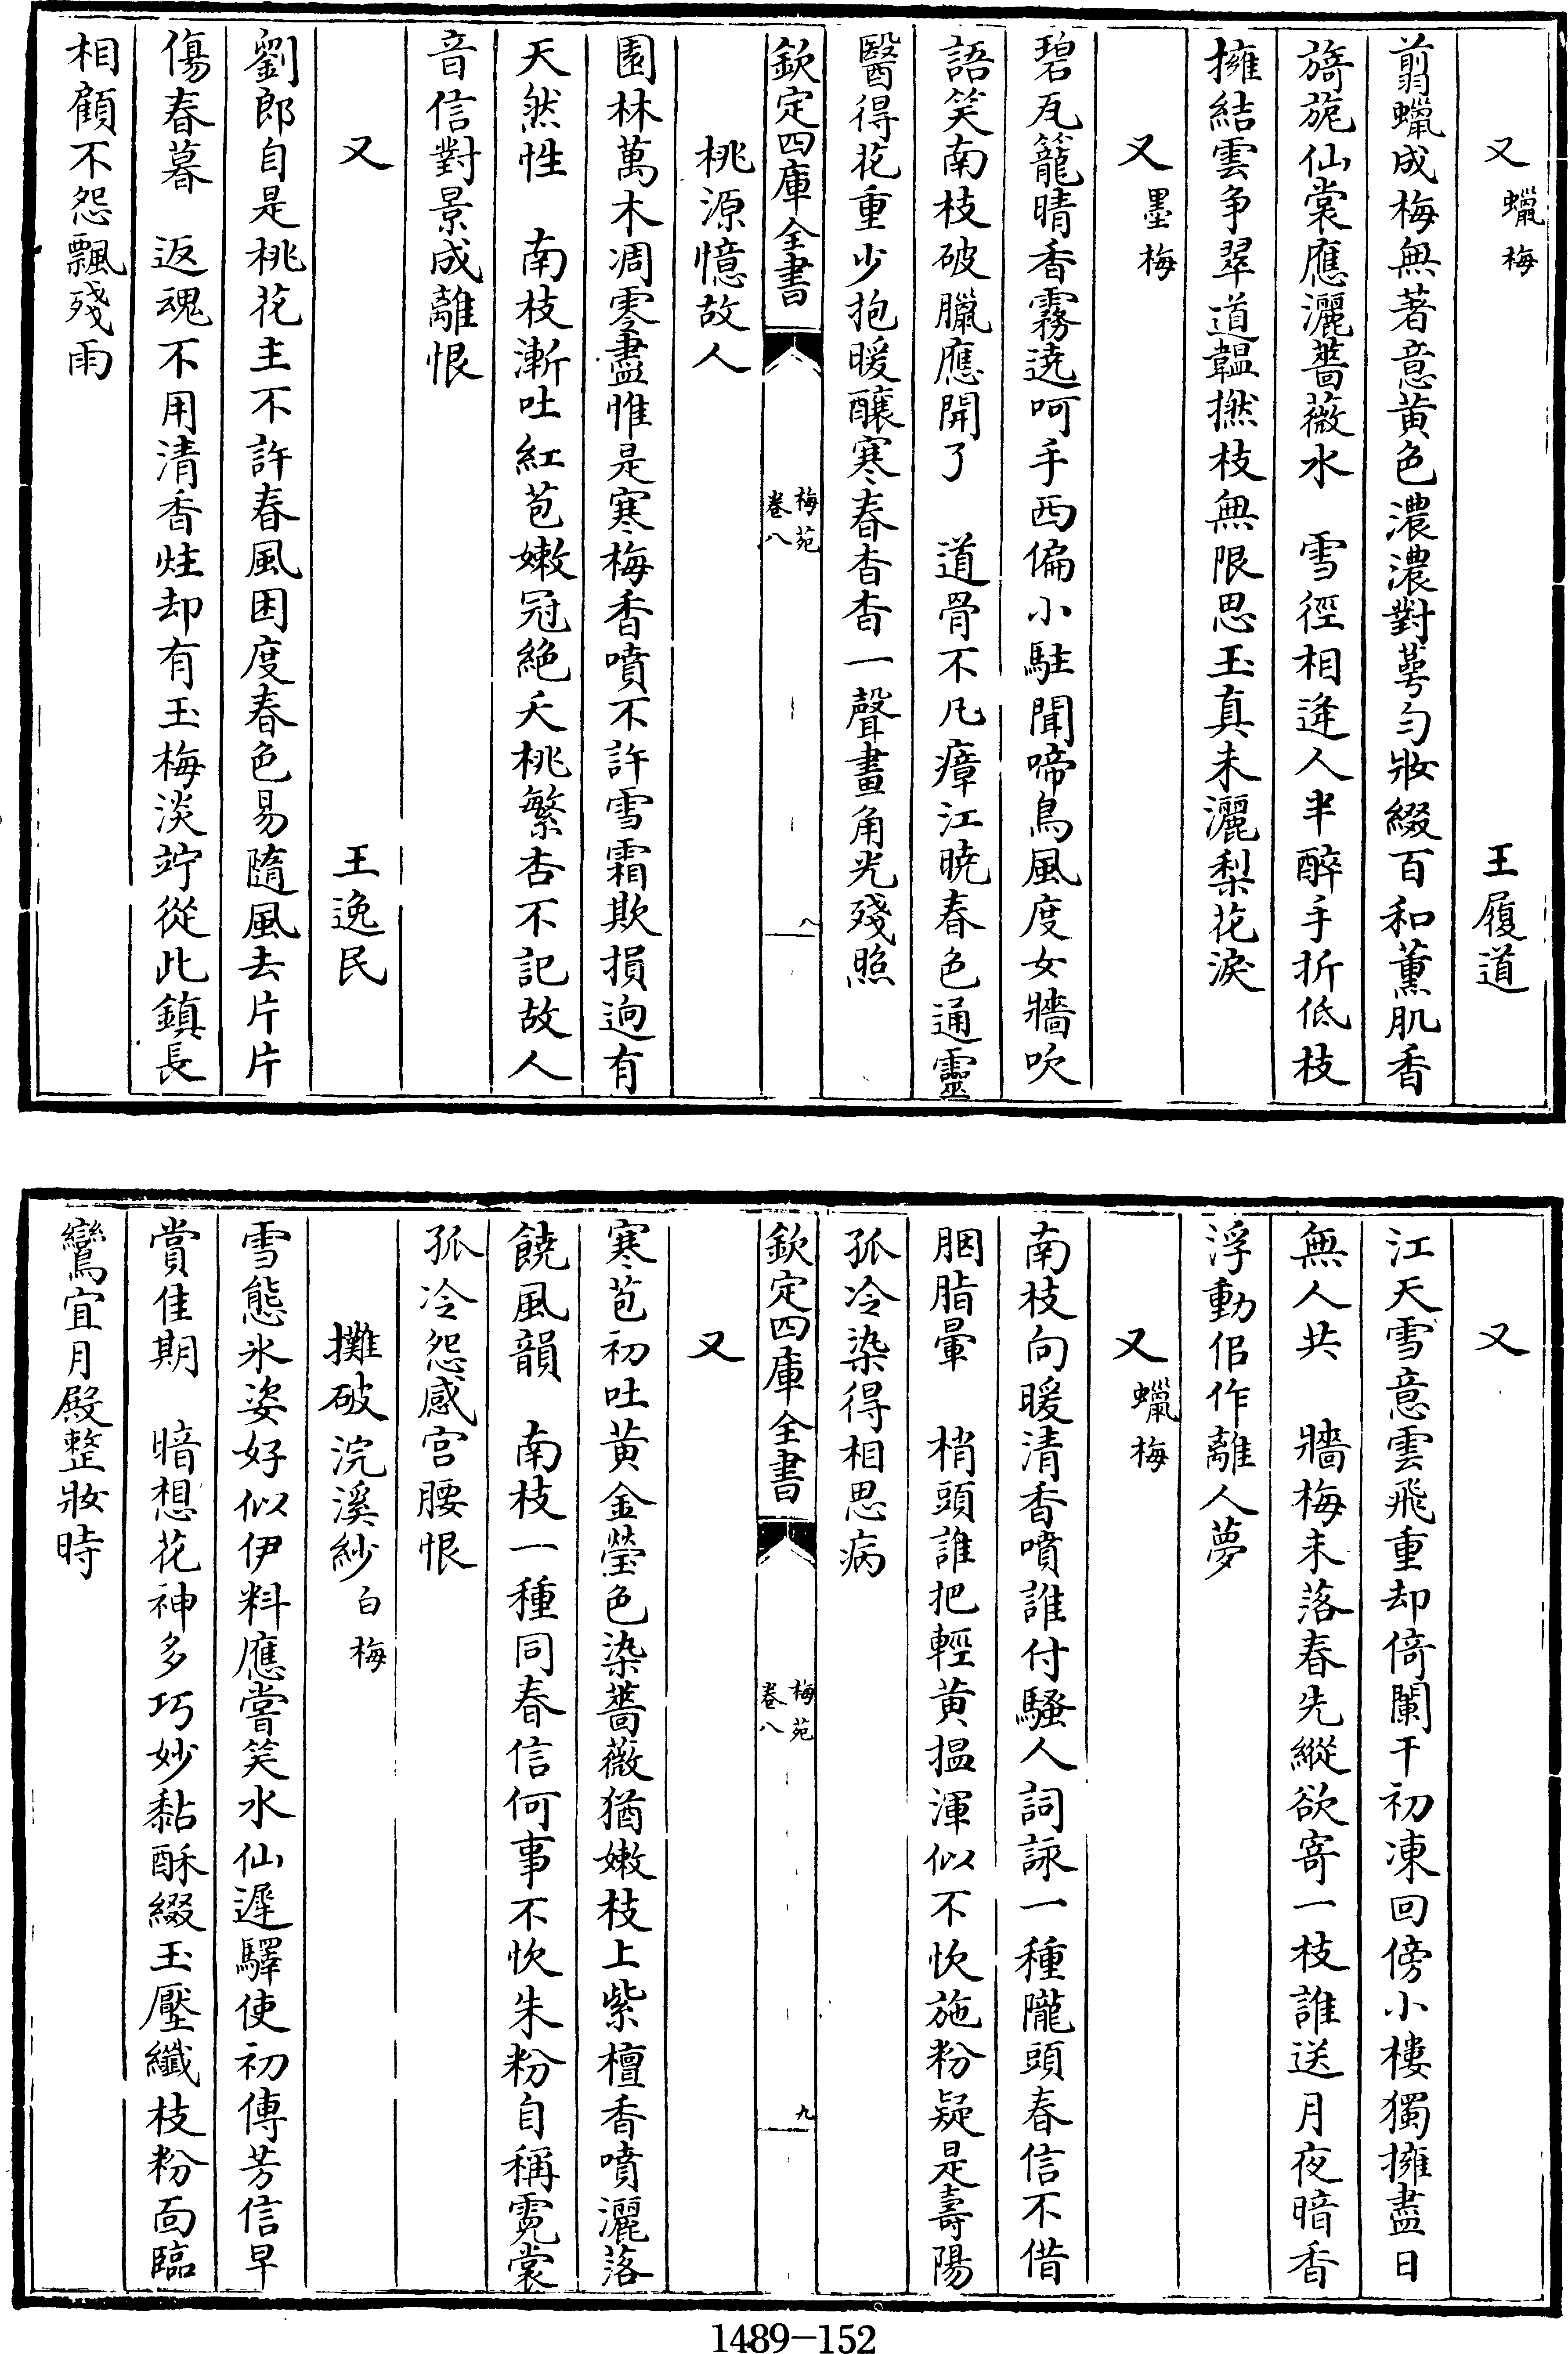 又蠟梅　王履道
翦蠟成梅無著意黄色濃濃對萼勻妝綴百和薰肌香
旖旎仙裳應灑薔薇水　雪徑相逢人半醉手折低枝
擁結雲争翠道韞撚枝無限思玉真未灑梨花淚
又墨梅
碧瓦籠晴香霧遶呵手西偏小駐聞啼鳥風度女牆吹
語笑南枝破臘應開了　道骨不凡瘴江曉春色通靈
醫得花重少抱暖釀寒春杳杳一聲畫角光殘照
欽定四庫全書　梅苑卷八　八
桃源憶故人
園林萬木凋零盡惟是寒梅香噴不許雪霜欺損逈有
天然性　南枝漸吐紅苞嫩冠絶夭桃繁杏不記故人
音信對景成離恨
又　王逸民
劉郎自是桃花主不許春風困度春色易隨風去片片
傷春暮　返魂不用清香炷却有玉梅淡竚從此鎮長
相顧不怨飄殘雨
又
江天雪意雲飛重却倚闌干初凍回傍小樓獨擁盡日
無人共　牆梅未落春先縱欲寄一枝誰送月夜暗香
浮動佀作離人夢
又蠟梅
南枝向暖清香噴誰付騷人詞詠一種隴頭春信不借
胭脂暈　梢頭誰把輕黄揾渾似不忺施粉疑是壽陽
孤冷染得相思病
欽定四庫全書　梅苑卷八　九
又
寒苞初吐黄金瑩色染薔薇猶嫩枝上紫檀香噴灑落
饒風韻　南枝一種同春信何事不忺朱粉自稱霓裳
孤冷怨感宫腰恨
攤破浣溪紗白梅
雪態氷姿好似伊料應嘗笑水仙遲驛使初傳芳信早
賞佳期　暗想花神多巧妙黏酥綴玉壓纖枝粉面臨
鸞宜月殿整妝時
1489—152